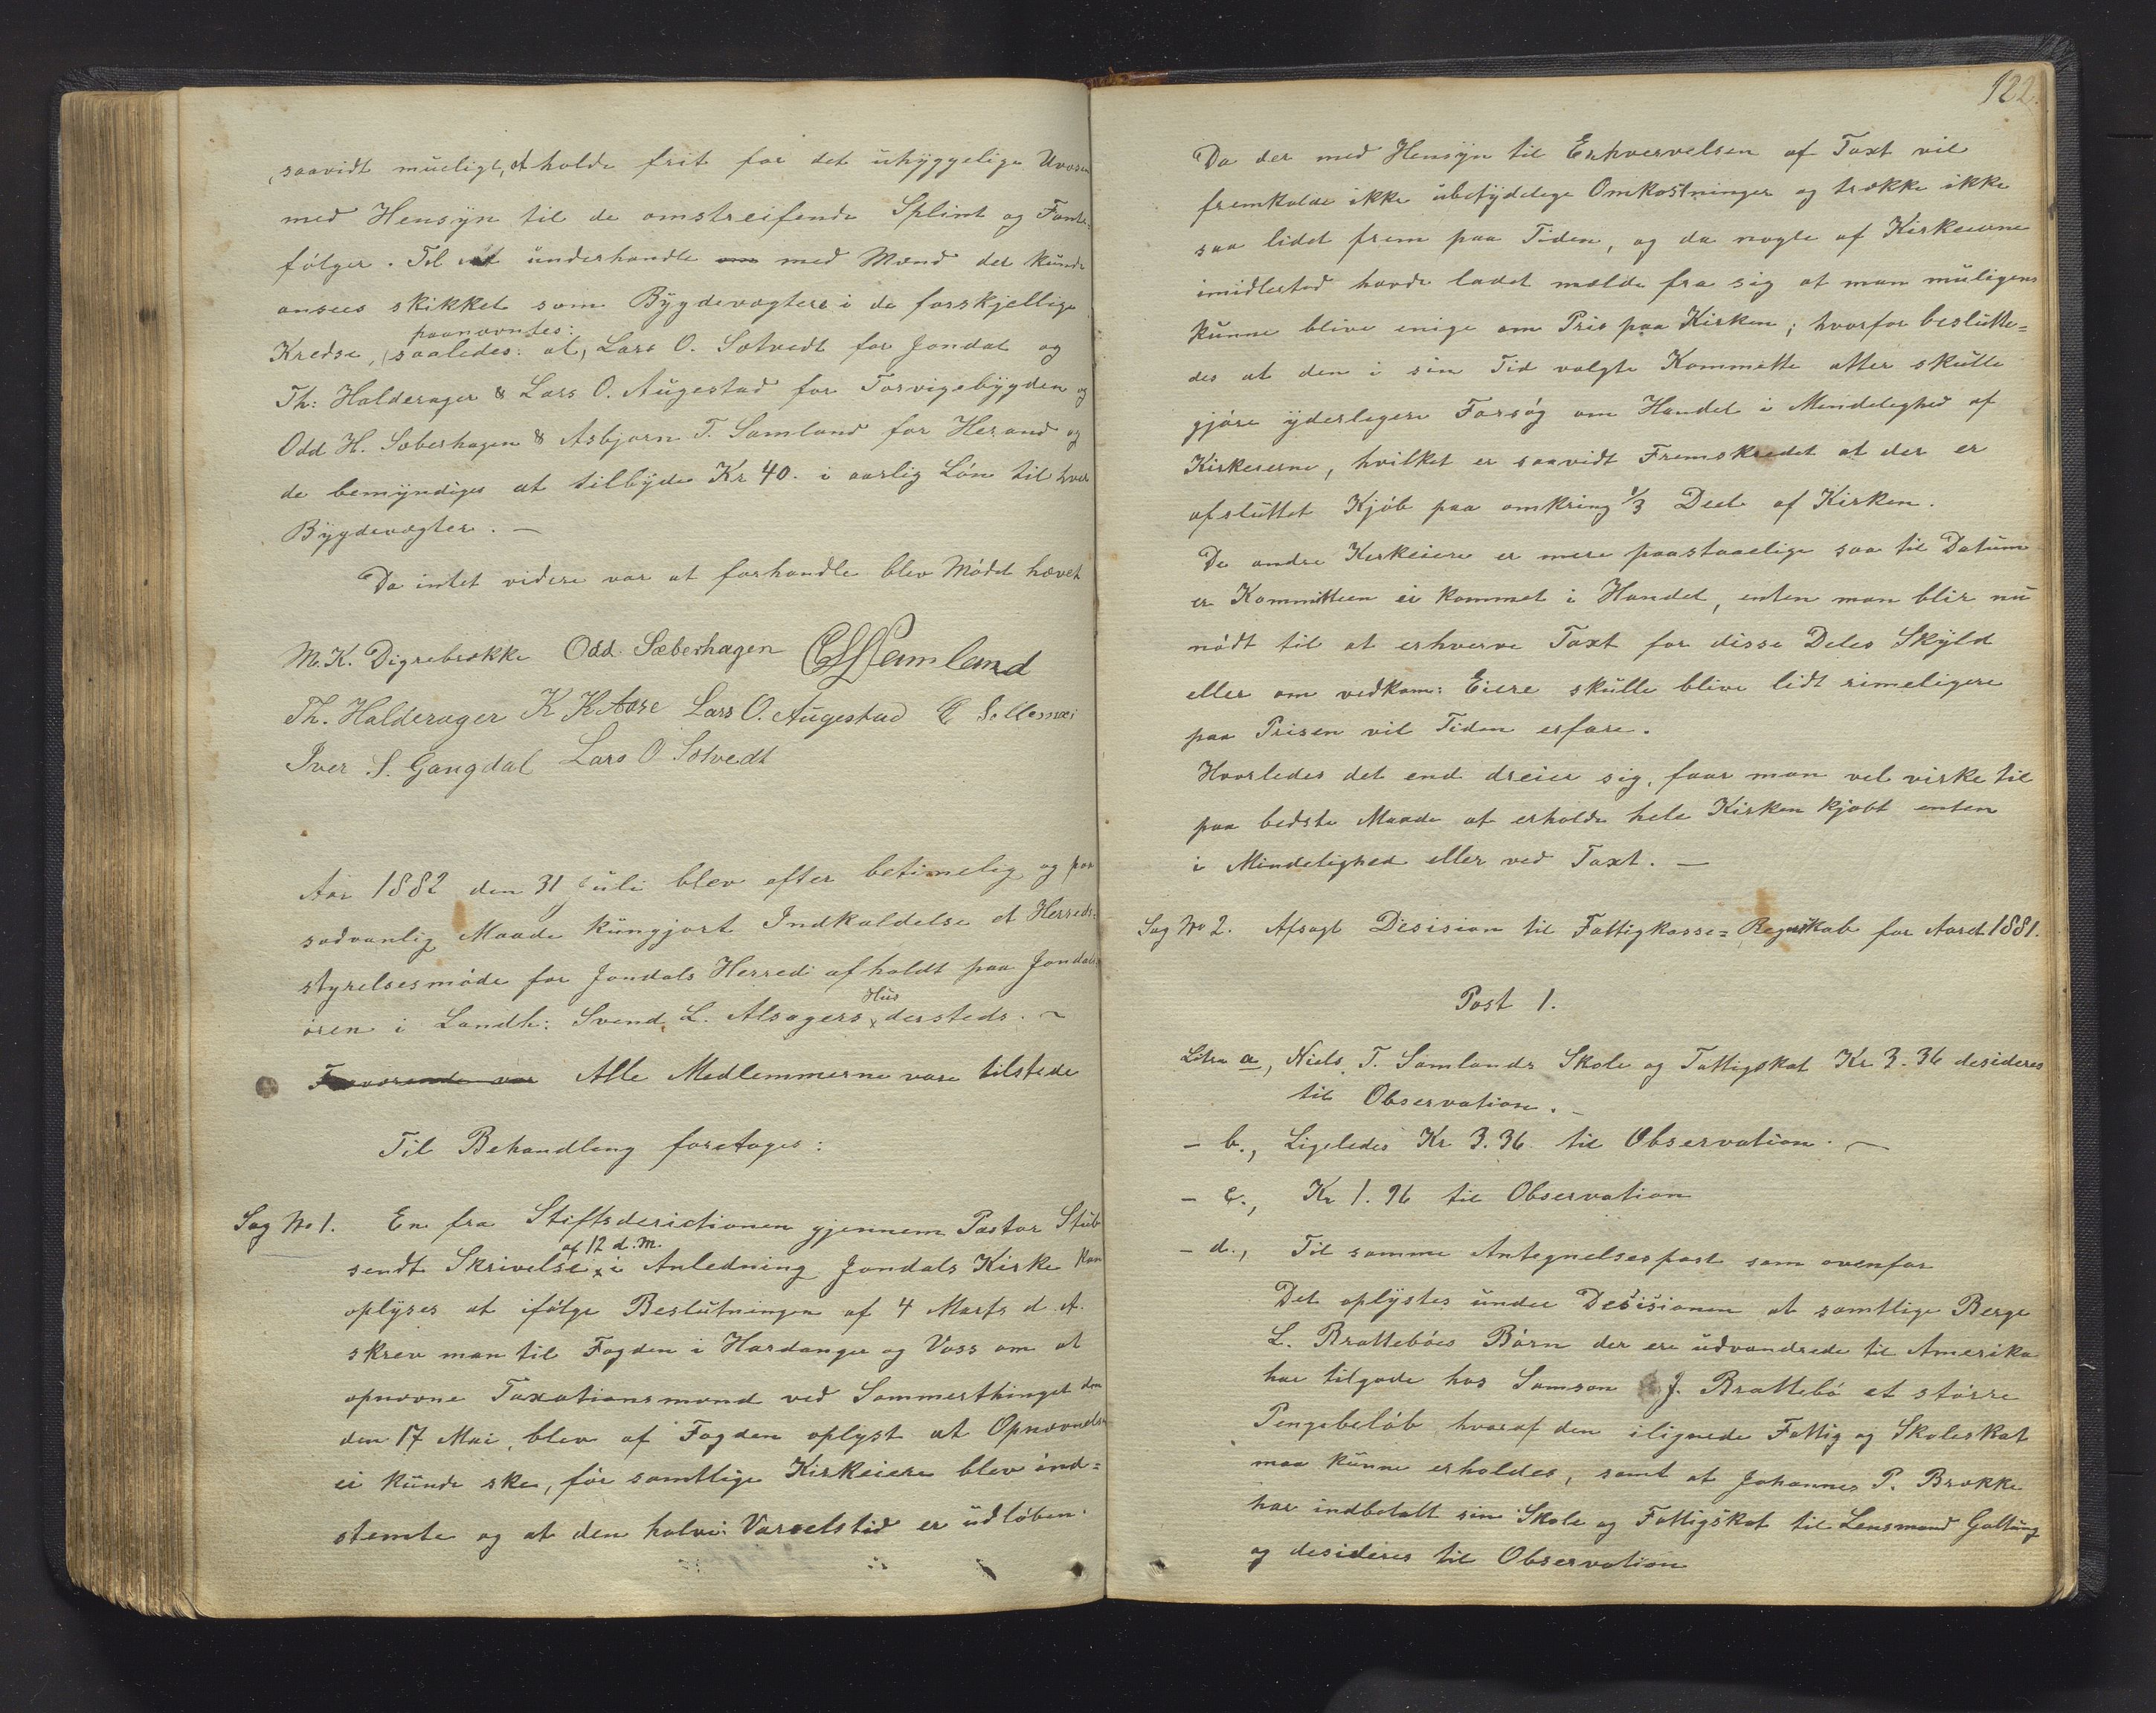 saavidt mueligt, at holde frit for det uhyggelige Uvæsen
med Hensyn til de omstreifende Splint og Fante-
følger. Til at underhandle om med Mænd der kunde
ansees skikket som Bygdevægtere i de forskjellige
paanævntes:
Kredse, saaledes: at, Lars O. Solvedt for Jondal og
Th: Halderager & Lars O. Augestad for Torvigebygden og
Odd H. Sæberhagen & Asbjørn T. Samland for Herand og
de bemyndiges at tilbyde Kr 40. i aarlig Løn til hver
Bygdevægter. —
Da intet videre var at forhandle blev Mødet hævet
M. K. Digrebrække Odd Sæberhagen Samland
Th. Halderager K K Aase Lars O. Augestad
Iver S. Gangdal Lars O Solvedt
Aar 1882 den 31 Juli blev efter betimelig og paa
sædvanlig Maade kungjort Indkaldelse et Herreds-
styrelsesmøde for Jondals Herred afholdt paa Jondals-
Hus
øren i Landh: Svend L. Alsagers dersteds. ~
Alle Medlemmerne vare tilstede
Til Behandling foretoges:
Sag No 1. En fra Stiftsderictionen gjennem Pastor Stub
af 12 d. M.
sendt Skrivelse i Anledning Jondals Kirke kan
oplyses at ifølge Beslutningen af 4 Marts d. A.
skrev man til Fogden i Hardanger og Voss om at
opnævne Taxationsmænd ved Sommerthinget den
den 17 Mai, blev af Fogden oplyst at Opnævnelsen
ei kunde ske, før samtlige Kirkeiere blev ind=
stemte og at den halve Varselstid er udløben.
122.
Da der med Hensyn til Erhvervelsen af Taxt vil
fremkalde ikke ubetydelege Omkostninger og trække ikke
saa lidet frem paa Tiden, og da nogle af Kirkeierne
imidlertid havde ladet melde fra sig at man muligens
kunne blive enige om Pris paa Kirken; hvorfor beslutte=
des at den i sin Tid valgte Kommette atter skulle
gjøre yderlegere Forsøg om Handel i Mindeleghed af
Kirkeierne, hvilket er saavidt Fremskredet at der er
afsluttet Kjøb paa omkring 1/3 Deel af Kirken.
De andre Kirkeiere er mere paastaaelige saa til Datum
er Kommitteen ei kommet i Handel, enten man blir nu
nødt til at erhverve Taxt for disse Deles Skyld
eller om vedkom: Eiere skulle blive lidt rimeligere
paa Prisen vil Tiden erfare.
Hvorledes det end dreier sig, faar man vel virke til
paa bedste Maade at erholde hele Kirken kjøbt enten
i Mindelighed eller ved Taxt. —
Sag No 2. Afsagt Desision til Fattigkasse=Regnskab for Aaret 1881.
Post 1.
Litra a, Niels T. Samlands Skole og Fattigskat Kr. 3.36 desideres
til Observation. —
– b., Ligeledes Kr 3.36 til Observation. —
– c., Kr 1.96 til Observation
– d., Til samme Antegnelsespost som ovenfor
Det oplystes under Desisionen at samtlige Berge
L. Brattebøes Børn der ere udvandrede til Amerika
har tilgode hos Samson J. Brattebø et større
Pengebeløb hvoraf den ilignede Fattig og Skoleskat
maa kunne erholdes, samt at Johannes P. Brække
har indbetalt sin Skole og Fattigskat til Lensmand Galtung
og desideres til Observation